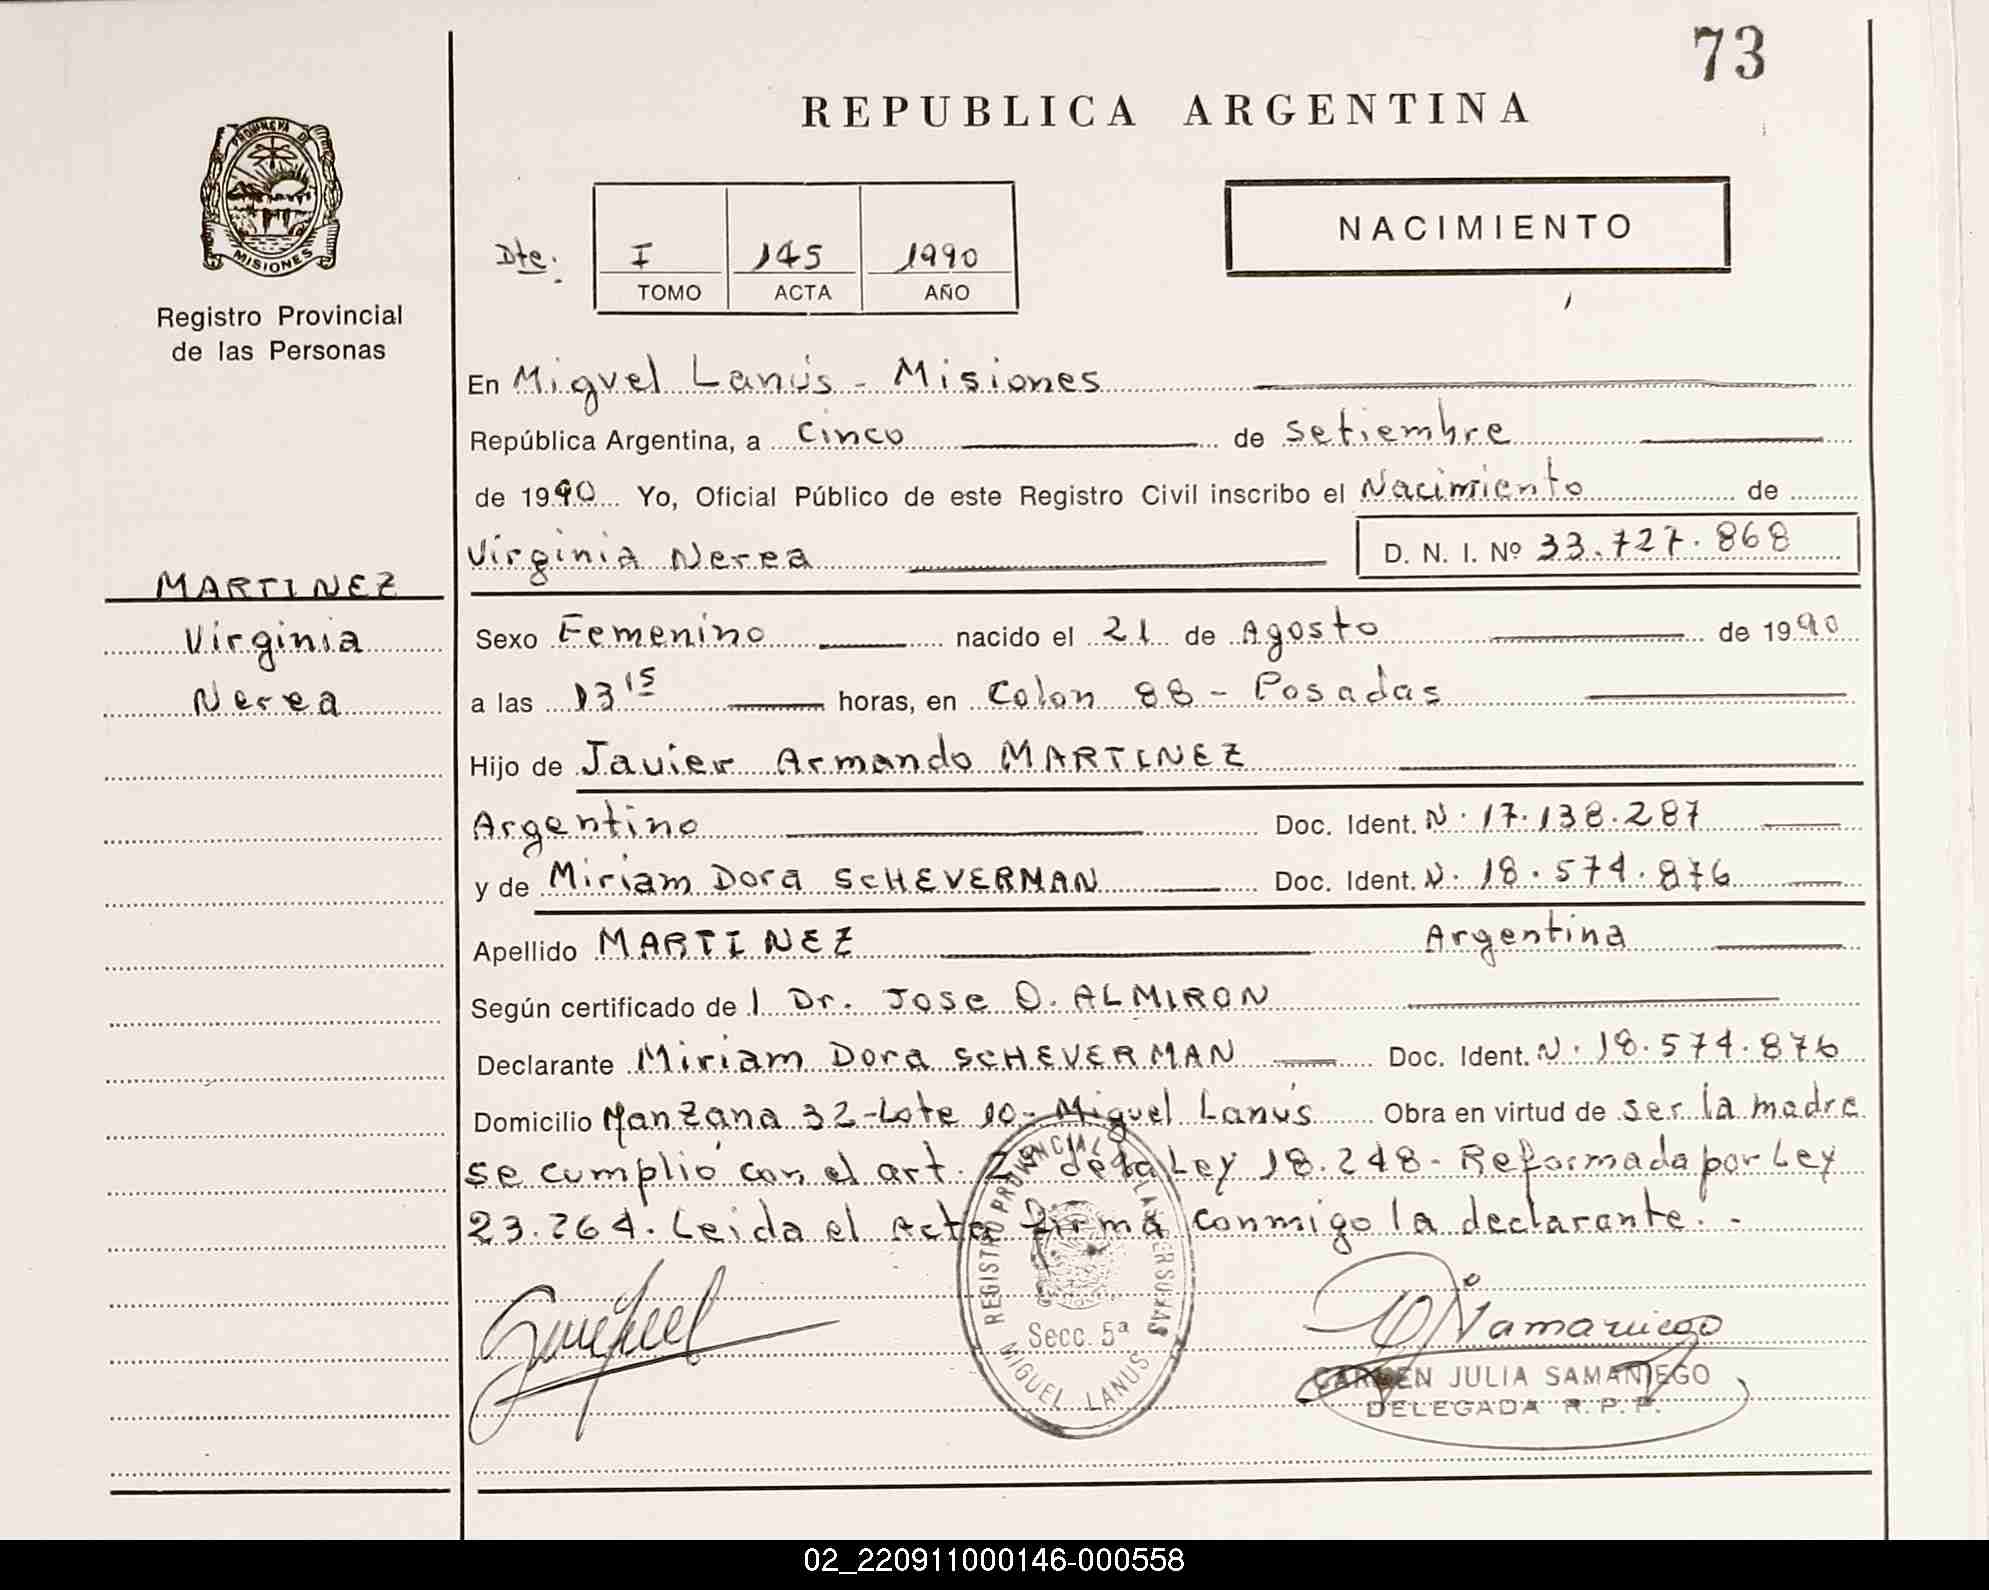 73
REPUBLICA ARGENTINA
PROVINCIA DE
MISIONES
Registro Provincial
de las Personas
Dte. I 145 1990
TOMO ACTA AÑO
NACIMIENTO
En Miguel Lanús - Misiones
República Argentina, a cinco de setiembre
de 1990 Yo, Oficial Público de este Registro Civil inscribo el Nacimiento de
Virginia Nerea D. N. I. Nº 33.727.868
MARTINEZ
Virginia
Nerea
Sexo Femenino nacido el 21 de Agosto de 1990
a las 13 15 horas, en Colon 88 - Posadas
Hijo de Javier Armando MARTINEZ
Argentino Doc. Ident. N. 17.138.287
y de Miriam Dora SCHEVERMAN Doc. Ident. N. 18.574.876
Apellido MARTINEZ Argentina
Según certificado de l Dr. Jose O. ALMIRON
Declarante Miriam Dora SCHEVERMAN Doc. Ident. N. 18.574.876
Domicilio Manzana 32-Lote 10- Miguel Lanús Obra en virtud de ser la madre
se cumplió con el art. 2º de la Ley 18.248- Reformada por Ley
23.264. Leida el Acta firma conmigo la declarante. -
REGISTRO PROVINCIAL DE LAS PERSONAS
Secc. 5ª
MIGUEL LANUS
CARMEN JULIA SAMANIEGO
DELEGADA R. P. P.
02_220911000146-000558